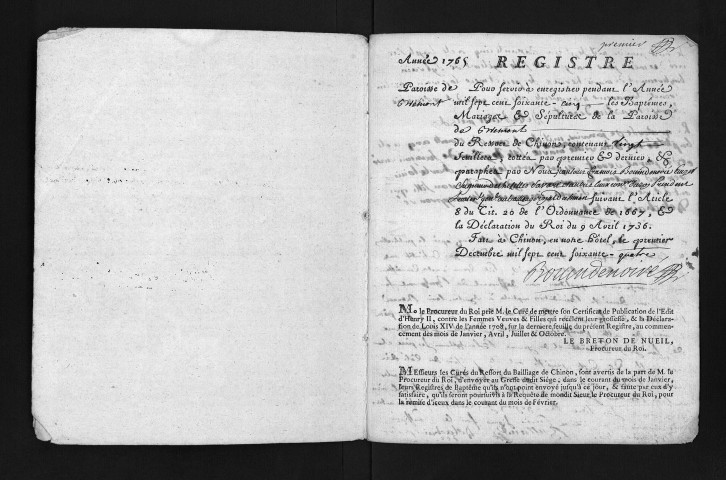 premier
Année 1765 REGISTRE
Paroisse de Pour servir à enregistrer pendant l'Année
mil sept cent soixante-cinq les Baptêmes,
Mariages & Sépultures de la Paroisse
de
du Ressort de Chinon, contenant vingt
feuillets, cottés par premier & dernier, &
paraphés par Nous
suivant l'Article
8 du Tit. 20 de l'Ordonnance de 1667, &
la Déclaration du Roi du 9 Avril 1736.
Fait à Chinon, en notre Hôtel, le premier
Decembre mil sept cent soixante-quatre
MR le Procureur du Roi prie M. le Curé de mettre son Certificat de Publication de l'Edit
d'Henry II, contre les Femmes Veuves & Filles qui recélent leur grossesse, & la Déclara-
tion de Louis XIV de l'année 1708, sur la derniere feuille du présent Registre, au commen-
cement des mois de Janvier, Avril, Juillet & Octobre.
LE BRETON DE NUEIL,
Procureur du Roi.
MESSIEURS les Curés du Ressort du Bailliage de Chinon, sont avertis de la part de M. le
Procureur du Roi, d'envoyer au Greffe dudit Siége, dans le courant du mois de Janvier,
leurs Registres de Baptême qu'ils n'ont point envoyé jusqu'à ce jour, & faute par eux d'y
satisfaire, qu'ils seront poursuivis à la Requête de mondit Sieur le Procureur du Roi, pour
la remise d'iceux dans le courant du mois de Février.